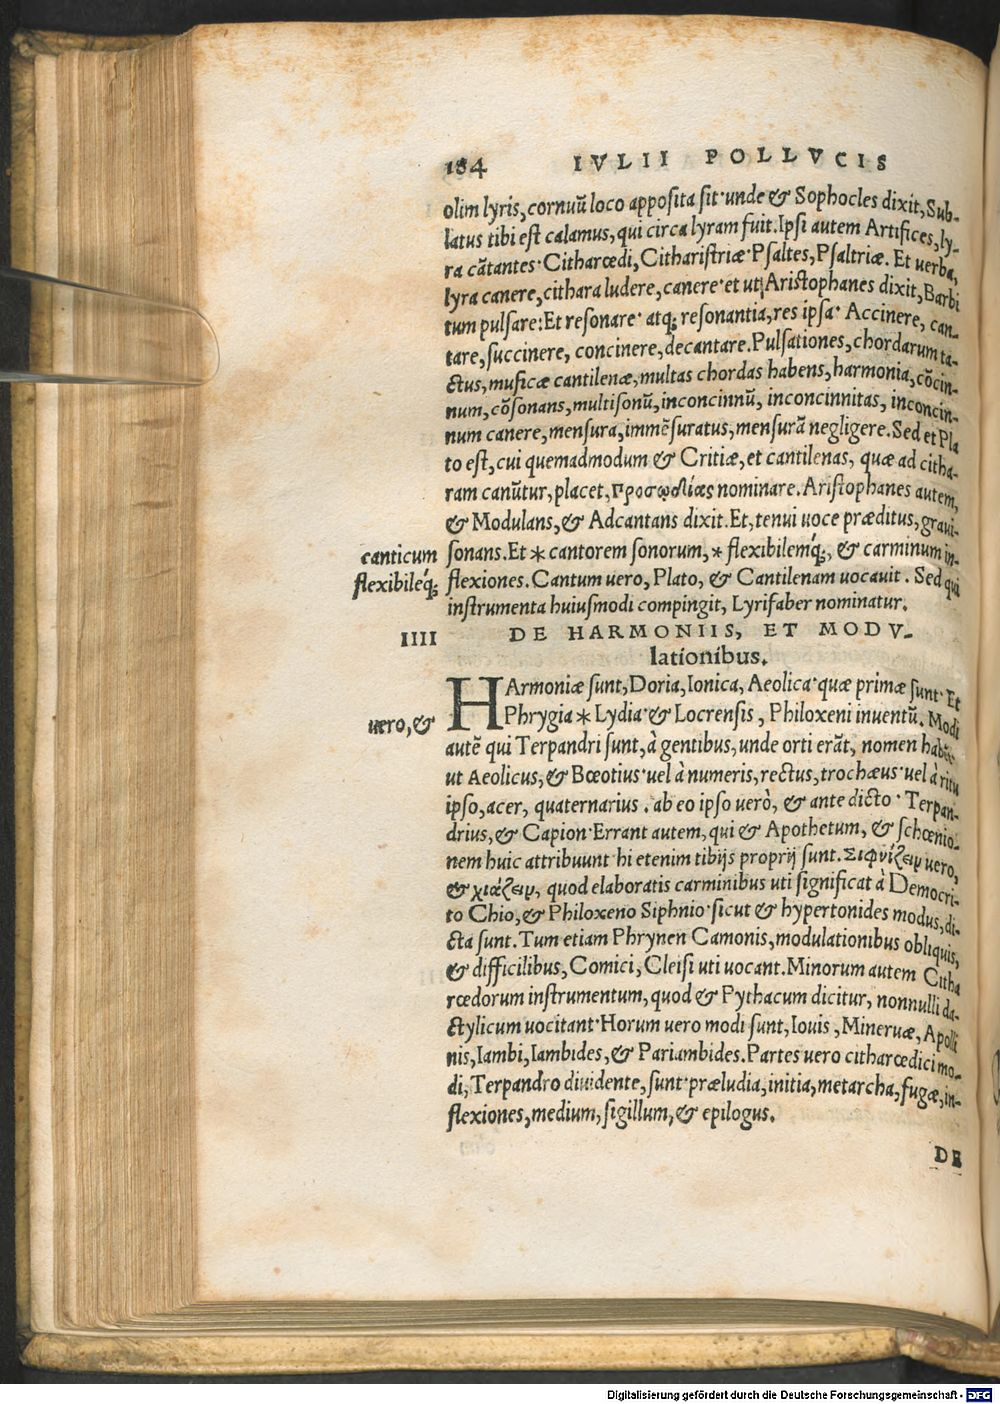 184 IVLII POLLVCIS
olim lyris, cornuũ loco apposita sit· unde & Sophocles dixit, Sub-
latus tibi est calamus, qui circa lyram fuit. Ipsi autem Artifices, ly-
ra cãtantes· Citharœdi, Citharistriæ· Psaltes, Psaltriæ. Et uerba,
lyra canere, cithara ludere, canere· et uti Aristophanes dixit, Barbi
tum pulsare: Et resonare· atq; resonantia, res ipsa· Accinere, can-
tare, succinere, concinere, decantare. Pulsationes, chordarum ta-
ctus, musicæ cantilenæ, multas chordas habens, harmonia, cõcin-
num, cõsonans, multisonũ, inconcinnũ, inconcinnitas, inconcin-
num canere, mensura, immẽsuratus, mensurã negligere. Sed et Pla
to est, cui quemadmodum & Critiæ, et cantilenas, quæ ad citha-
ram canũtur, placet, Προσῳδίας nominare. Aristophanes autem,
& Modulans, & Adcantans dixit. Et, tenui uoce præditus, graui-
canticum sonans. Et * cantorem sonorum, * flexibilemq́;, & carminum in-
flexibileq́; flexiones. Cantum uero, Plato, & Cantilenam uocauit. Sed qui
instrumenta huiusmodi compingit, Lyrifaber nominatur.
IIII DE HARMONIIS, ET MODV-
lationibus.
HArmoniæ sunt, Doria, Ionica, Aeolica· quæ primæ sunt· Et
uero, & Phrygia * Lydia· & Locrensis, Philoxeni inuentũ. Modi
autẽ qui Terpandri sunt, à gentibus, unde orti erãt, nomen habẽt
ut Aeolicus, & Bœotius· uel à numeris, rectus, trochæus· uel à ritu
ipso, acer, quaternarius. ab eo ipso uerò, & ante dicto· Terpan-
drius, & Capion· Errant autem, qui & Apothetum, & schœnio-
nem huic attribuunt· hi etenim tibijs proprij sunt. Σιφνίζειν uero,
& χιάζειν, quod elaboratis carminibus uti significat à Democri-
to Chio, & Philoxeno Siphnio· sicut & hypertonides modus, di-
cta sunt. Tum etiam Phrynen Camonis, modulationibus obliquis,
& difficilibus, Comici, Cleisi uti uocant. Minorum autem Citha
rœdorum instrumentum, quod & Pythacum dicitur, nonnulli da-
ctylicum uocitant· Horum uero modi sunt, Iouis, Mineruæ, Apolli
nis, Iambi, Iambides, & Pariambides. Partes uero citharœdici mo-
di, Terpandro diuidente, sunt· præludia, initia, metarcha, fugæ, in-
flexiones, medium, sigillum, & epilogus.
DE
Digitalisierung gefördert durch die Deutsche Forschungsgemeinschaft - DFG